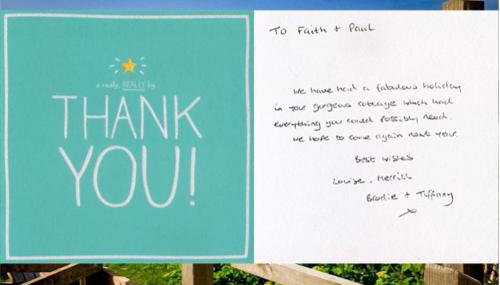 a really, REALLY big
THANK
YOU!
To Faith + Paul
We have had a fabulous holiday
in your gorgeous cottage which had
everything you could possibly need.
We hope to come again next year.
Best wishes
Louise, Merrill
Brodie + Tiffany
x